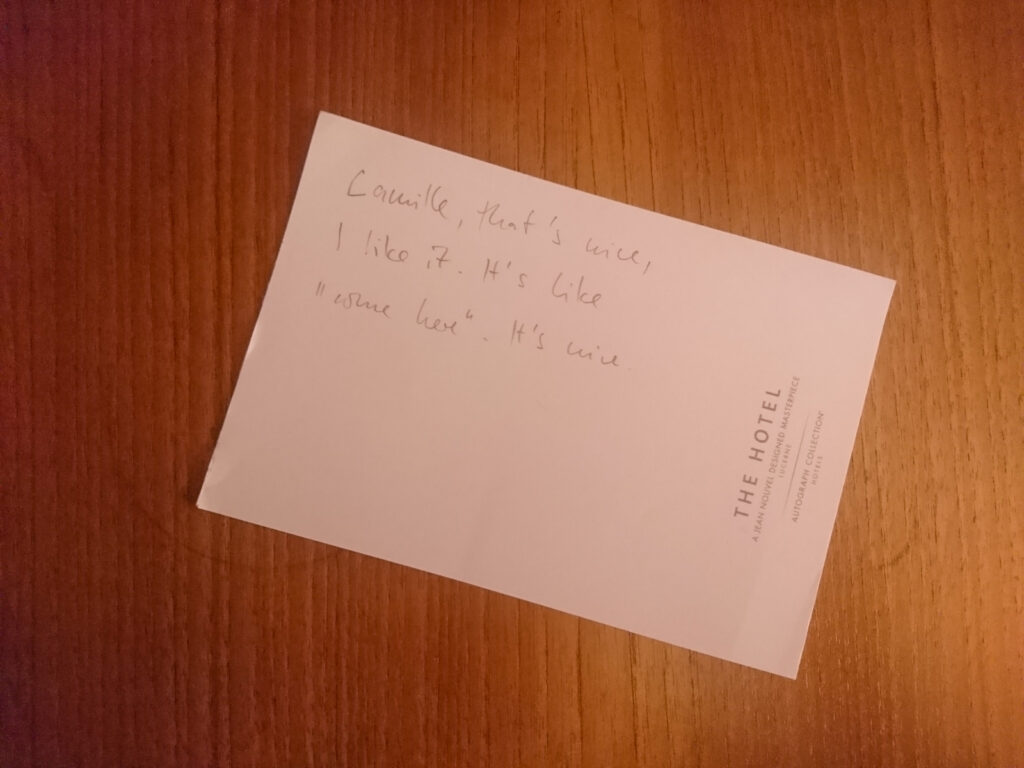 Camille, that's nice,
I like it. It's like
"come here". It's nice.
THE HOTEL
A JEAN NOUVEL DESIGNED MASTERPIECE
LUCERNE
AUTOGRAPH COLLECTION®
HOTELS